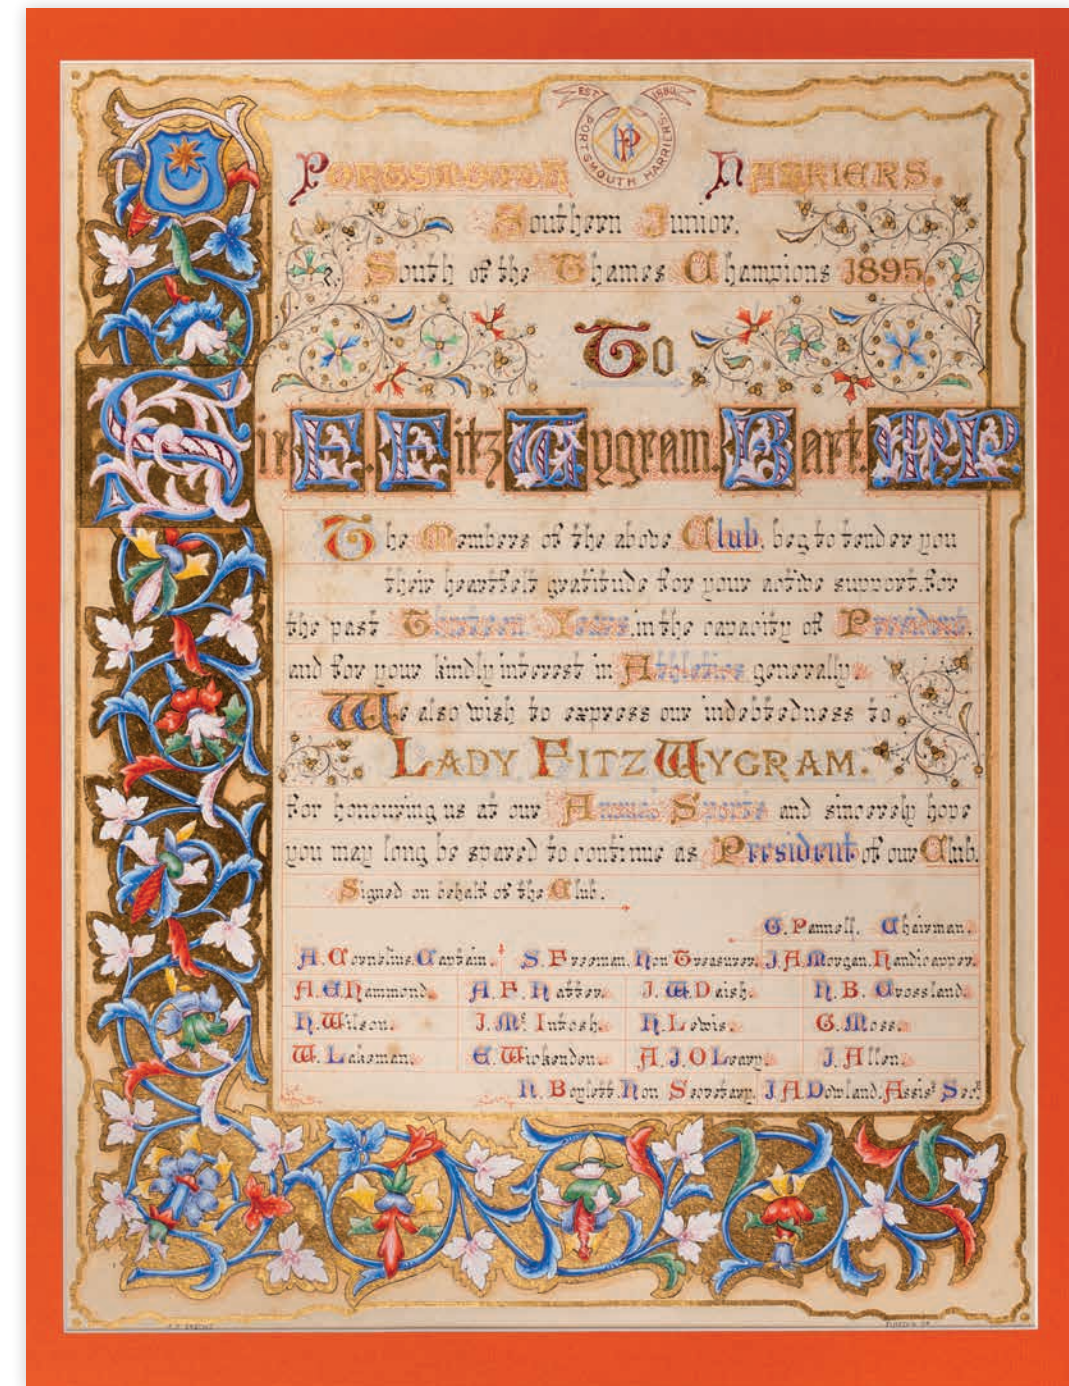 EST 1880.
PORTSMOUTH HARRIERS.
HP
PORTSMOUTH HARRIERS.
Southern Junior.
& South of the Thames Champions 1895.
To
Sir F. Fitz Wygram. Bart. M.P.
The Members of the above Club, beg to tender you
their heartfelt gratitude for your active support. for
the past Thirteen Years, in the capacity of President,
and for your kindly interest in Athletics generally.
We also wish to express our indebtedness to
LADY FITZ WYGRAM.
for honouring us at our Annual Sports and sincerely hope
you may long be spared to continue as President of our Club.
Signed on behalf of the Club.
G. Pannell. Chairman.
A. Cornelius. Captain. S. Freeman. Hon Treasurer. J. A. Morgan. Handicapper.
A. E. Hammond. A. F. Hatter. J. W. Daish. H. B. Crossland.
H. Wilson. J. Mc. Intosh. H. Lewis. G. Moss.
W. Lakeman. E. Wickenden. A. J. O Leary. J. Allen.
H. Boylett. Hon Secretary. J. A. Dowland. Assist Sec.